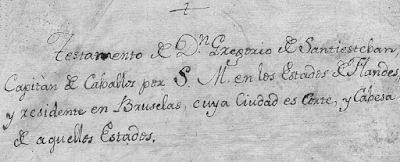 Testamento de Dn Gregorio de Santiesteban,
Capitan de Caballos por S. M. en los Estados de Flandes,
y residente en Bruselas, cuya Ciudad es Corte, y Cabesa
de aquellos Estados.